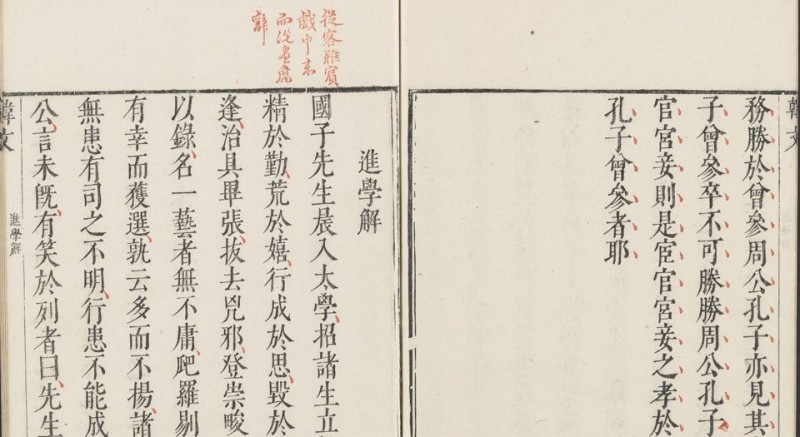 韓文
務勝於曾參周公孔子亦見其
子曾參卒不可勝勝周公孔子
官宮妾則是宦官宮妾之孝於
孔子曾參者耶
從客難賓
戲中来
而洗
辭
進學解
國子先生晨入太學招諸生立
精於勤荒於嬉行成於思毀於
逢治具畢張拔去兇邪登崇畯
以錄名一藝者無不庸爬羅剔
有幸而獲選孰云多而不揚諸
無患有司之不明行患不能成
公言未旣有笑於列者曰先生
韓文
進學解